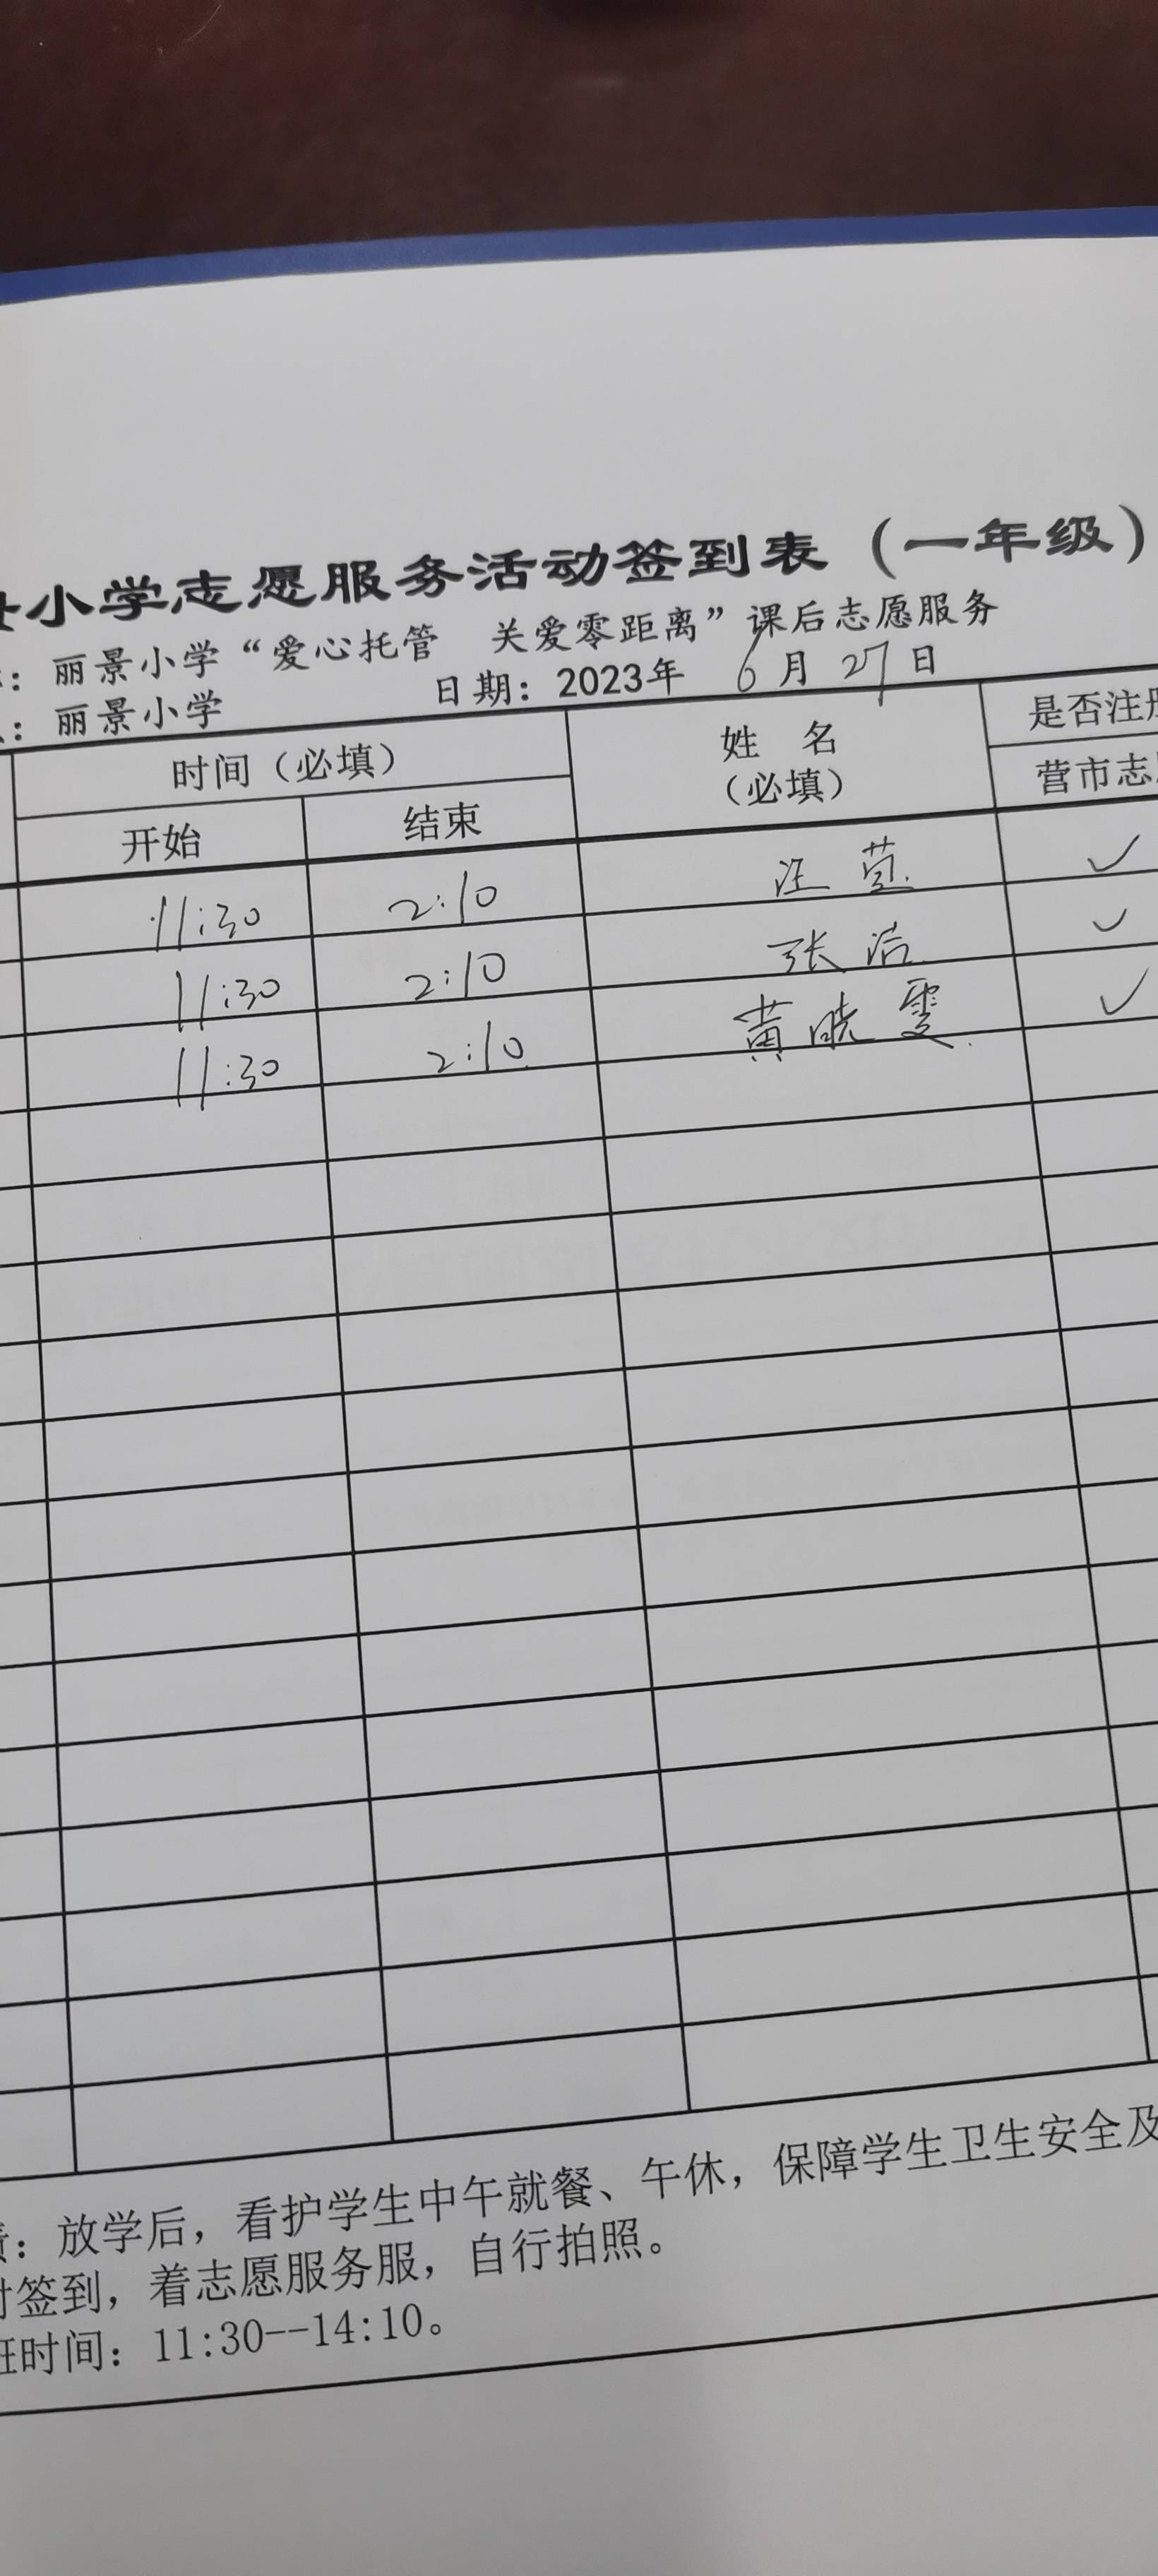 小学志愿服务活动签到表（一年级）
：丽景小学“爱心托管 关爱零距离”课后志愿服务
：丽景小学 日期：2023年 6月 27日
时间（必填） 姓 名 （必填） 是否注册
开始 结束 营市志
11:30 2:10 汪 ✓
11:30 2:10 张洁 ✓
11:30 2:10 黄晓雯 ✓
：放学后，看护学生中午就餐、午休，保障学生卫生安全及
时签到，着志愿服务服，自行拍照。
班时间：11:30--14:10。